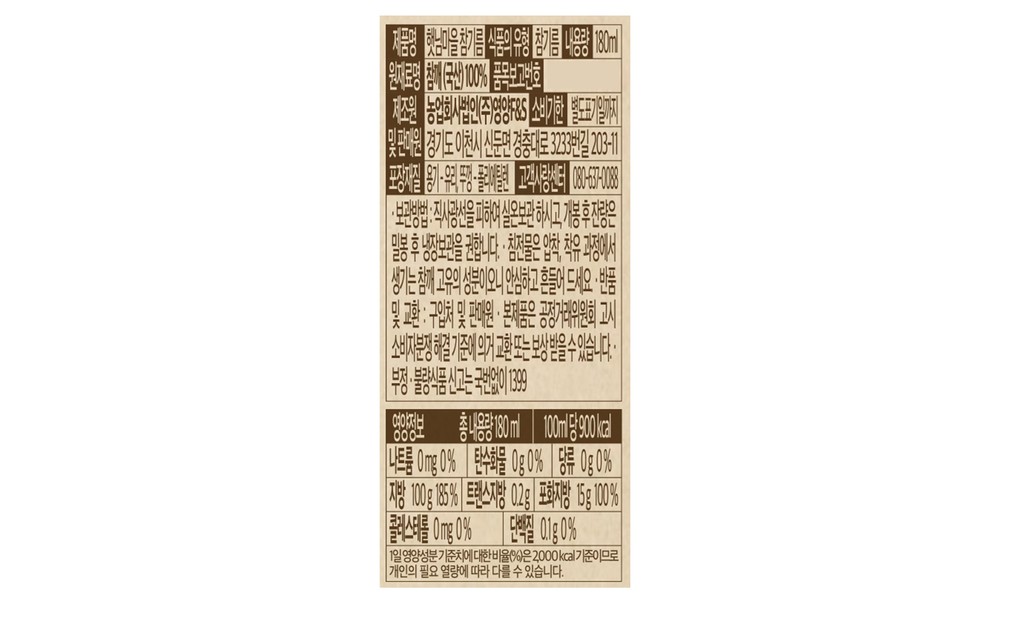 제품명 햇님마을 참기름 식품의 유형 참기름 내용량 180ml
원재료명 참깨 (국산) 100% 품목보고번호
제조원 농업회사법인(주)영양F&S 소비기한 별도표기일까지
및 판매원 경기도 이천시 신둔면 경충대로 3233번길 203-11
포장재질 용기 - 유리, 뚜껑 - 폴리에틸렌 고객사랑센터 080-637-0088
· 보관방법 : 직사광선을 피하여 실온보관 하시고, 개봉 후 잔량은
밀봉 후 냉장보관을 권합니다. · 침전물은 압착, 착유 과정에서
생기는 참깨 고유의 성분이오니 안심하고 흔들어 드세요. · 반품
및 교환 : 구입처 및 판매원 · 본제품은 공정거래위원회 고시
소비자분쟁 해결 기준에 의거 교환 또는 보상 받을 수 있습니다. ·
부정 · 불량식품 신고는 국번없이 1399
영양정보 총 내용량 180 ml 100ml 당 900 kcal
나트륨 0 mg 0 % 탄수화물 0 g 0 % 당류 0 g 0 %
지방 100 g 185 % 트랜스지방 0.2 g 포화지방 15 g 100 %
콜레스테롤 0 mg 0 % 단백질 0.1 g 0 %
1일 영양성분 기준치에 대한 비율(%)은 2,000 kcal 기준이므로
개인의 필요 열량에 따라 다를 수 있습니다.